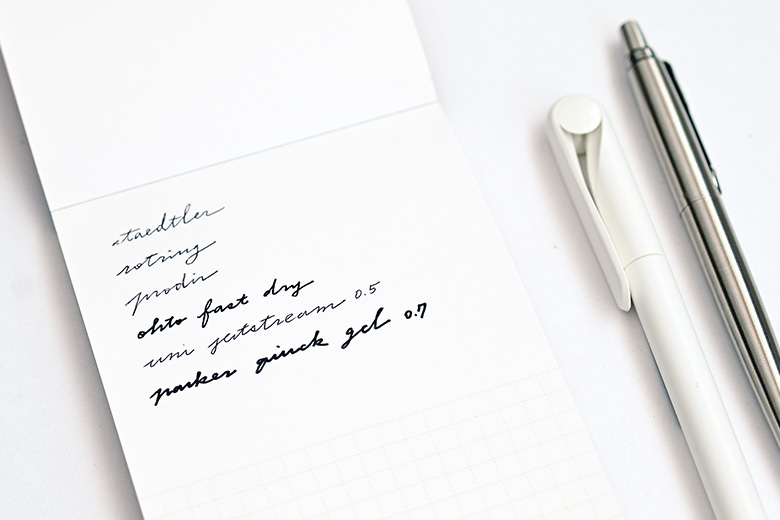 staedtler
rotring
prodir
ohto fast dry
uni jetstream 0.5
parker quick gel 0.7